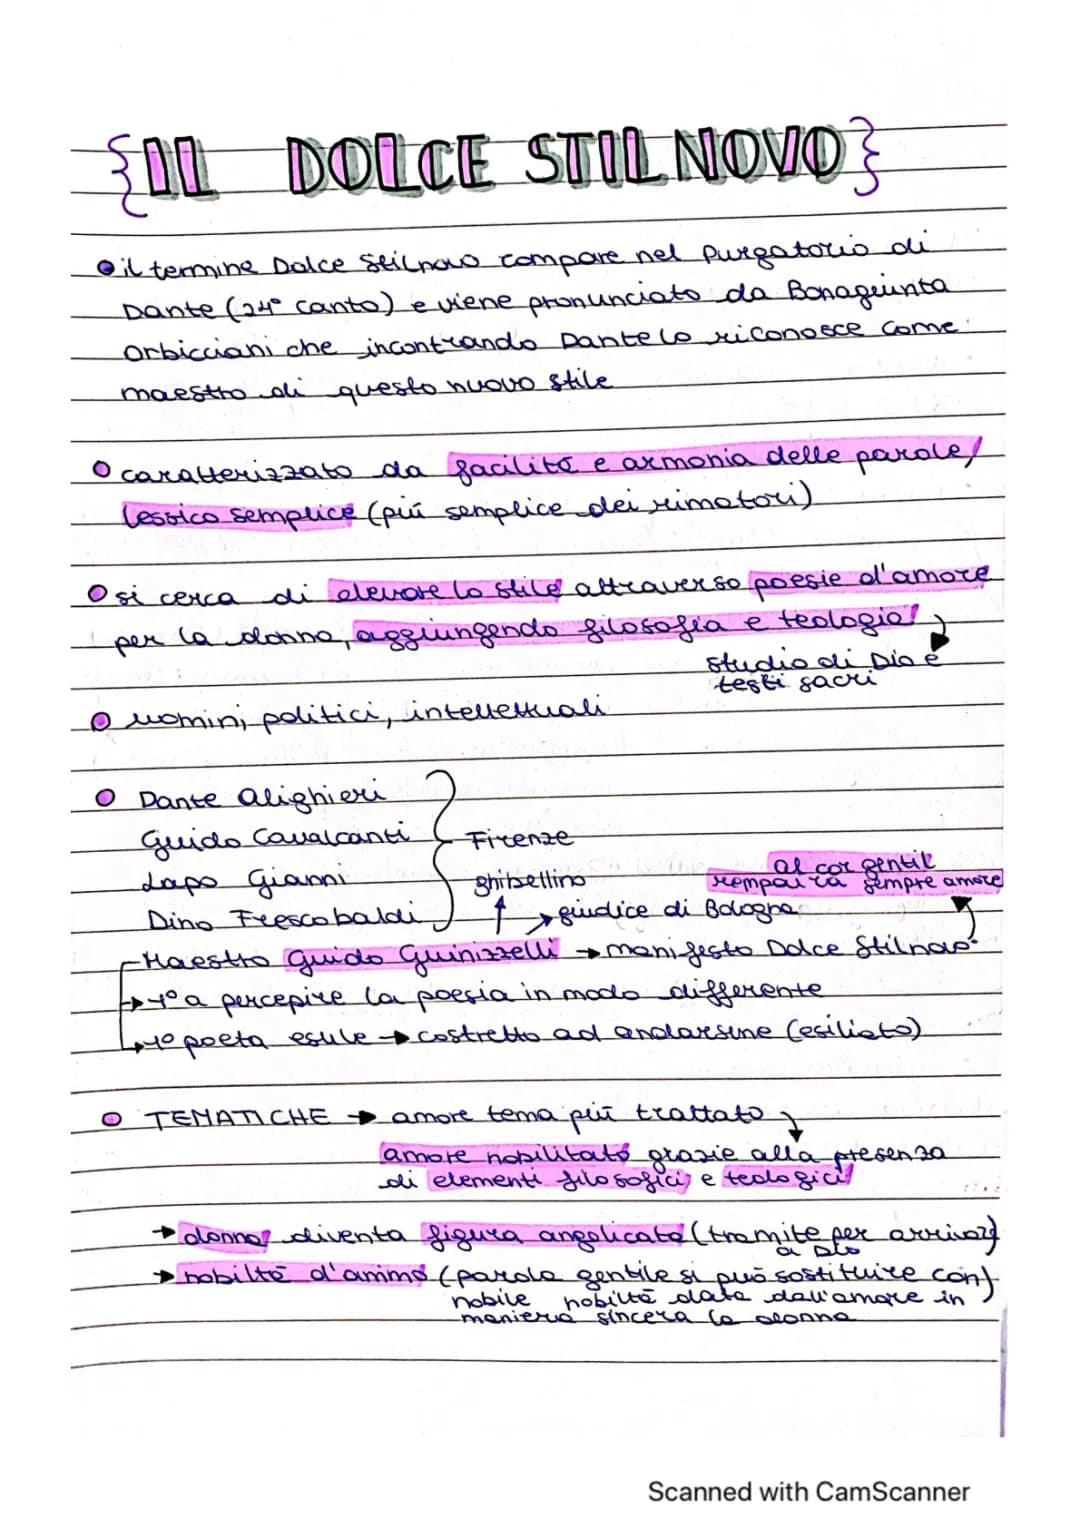 {IL DOLCE STIL NOVO}
il termine Dolce Stilnovo compare nel Purgatorio di
Dante (24° canto) e viene pronunciato da Bonagiunta
Orbicciani che incontrando Dante lo riconosce come
maestro di questo nuovo stile
caratterizzato da facilità e armonia delle parole,
lessico semplice (più semplice dei rimatori)
si cerca di elevare lo stile attraverso poesie d'amore
per la donna, aggiungendo filosofia e teologia
studio di Dio e
testi sacri
uomini politici, intellettuali
Dante Alighieri
Guido Cavalcanti
Firenze
Lapo Gianni
Dino Frescobaldi
ghibellino
giudice di Bologna
al cor gentil
rempaira sempre amore
Maestro Guido Guinizzelli → manifesto Dolce Stilnovo
→ 1° a percepire la poesia in modo differente
→ 1° poeta esule → costretto ad andarsene (esiliato)
TEMATICHE → amore tema più trattato
amore nobilitato grazie alla presenza
di elementi filosofici e teologici
→ donna, diventa figura angelicata (tramite per arrivare)
a Dio
→ nobiltà d'animo (parola gentile si può sostituire con)
nobile nobiltà data dall'amare in
maniera sincera la donna
Scanned with CamScanner